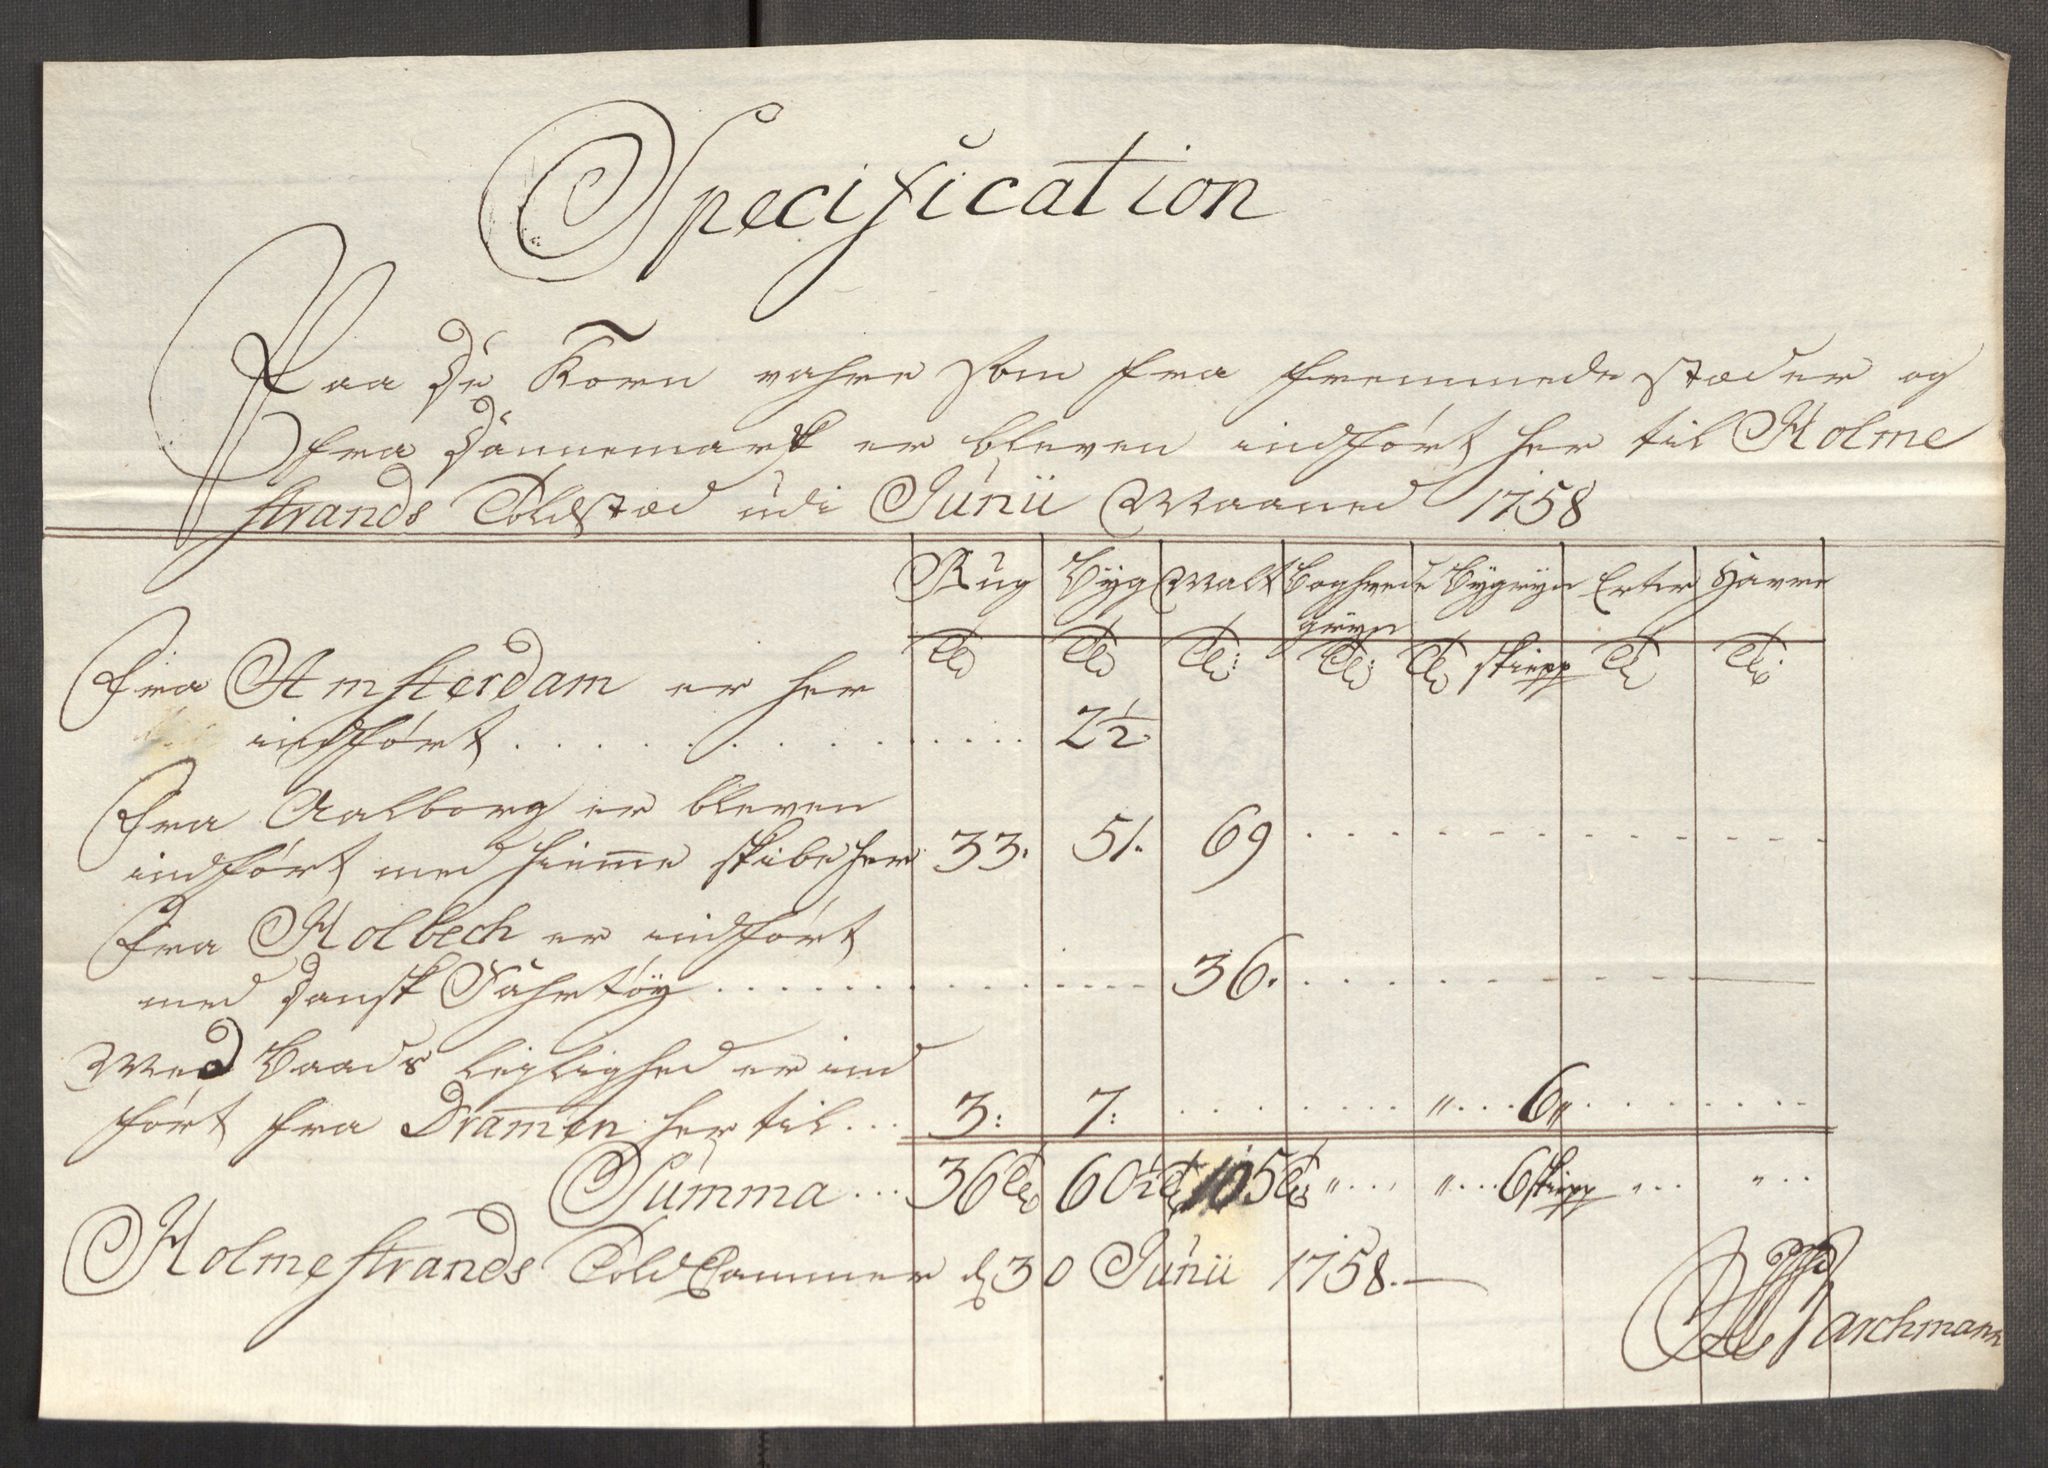 Specification
Paa De Korn vahre som fra fremmede stæder og
fra Dannemark er bleven indført her til Holme
strands Toldstæd udi Junii Maaned 1758
Rug Byg Malt Boghvede Bÿgrÿn Erter Havre
grÿn
Tdr Tdr Tdr: Tdr: Tdr skiepp Tdr Tdr:
Fra Amsterdam er her
indført . . . . . . 2½.
Fra Aalborg er bleven
indført med hiemme skibe her 33. 51. 69
Fra Holbech er indført
med Dansk Fahrtöÿ . . . . . . 36.
Med Baads leylighed er ind
ført fra Dramen her til... 3: 7: „ 6„
Summa... 36 Tdr 60½ Tdr 105 Tdr „ „ 6 skiepp „ „
Holmestrands Told Cammer d 30 Junii 1758.